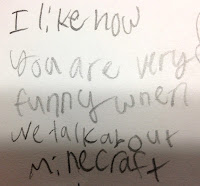 I like how
you are very
funny when
we talk about
Minecraft